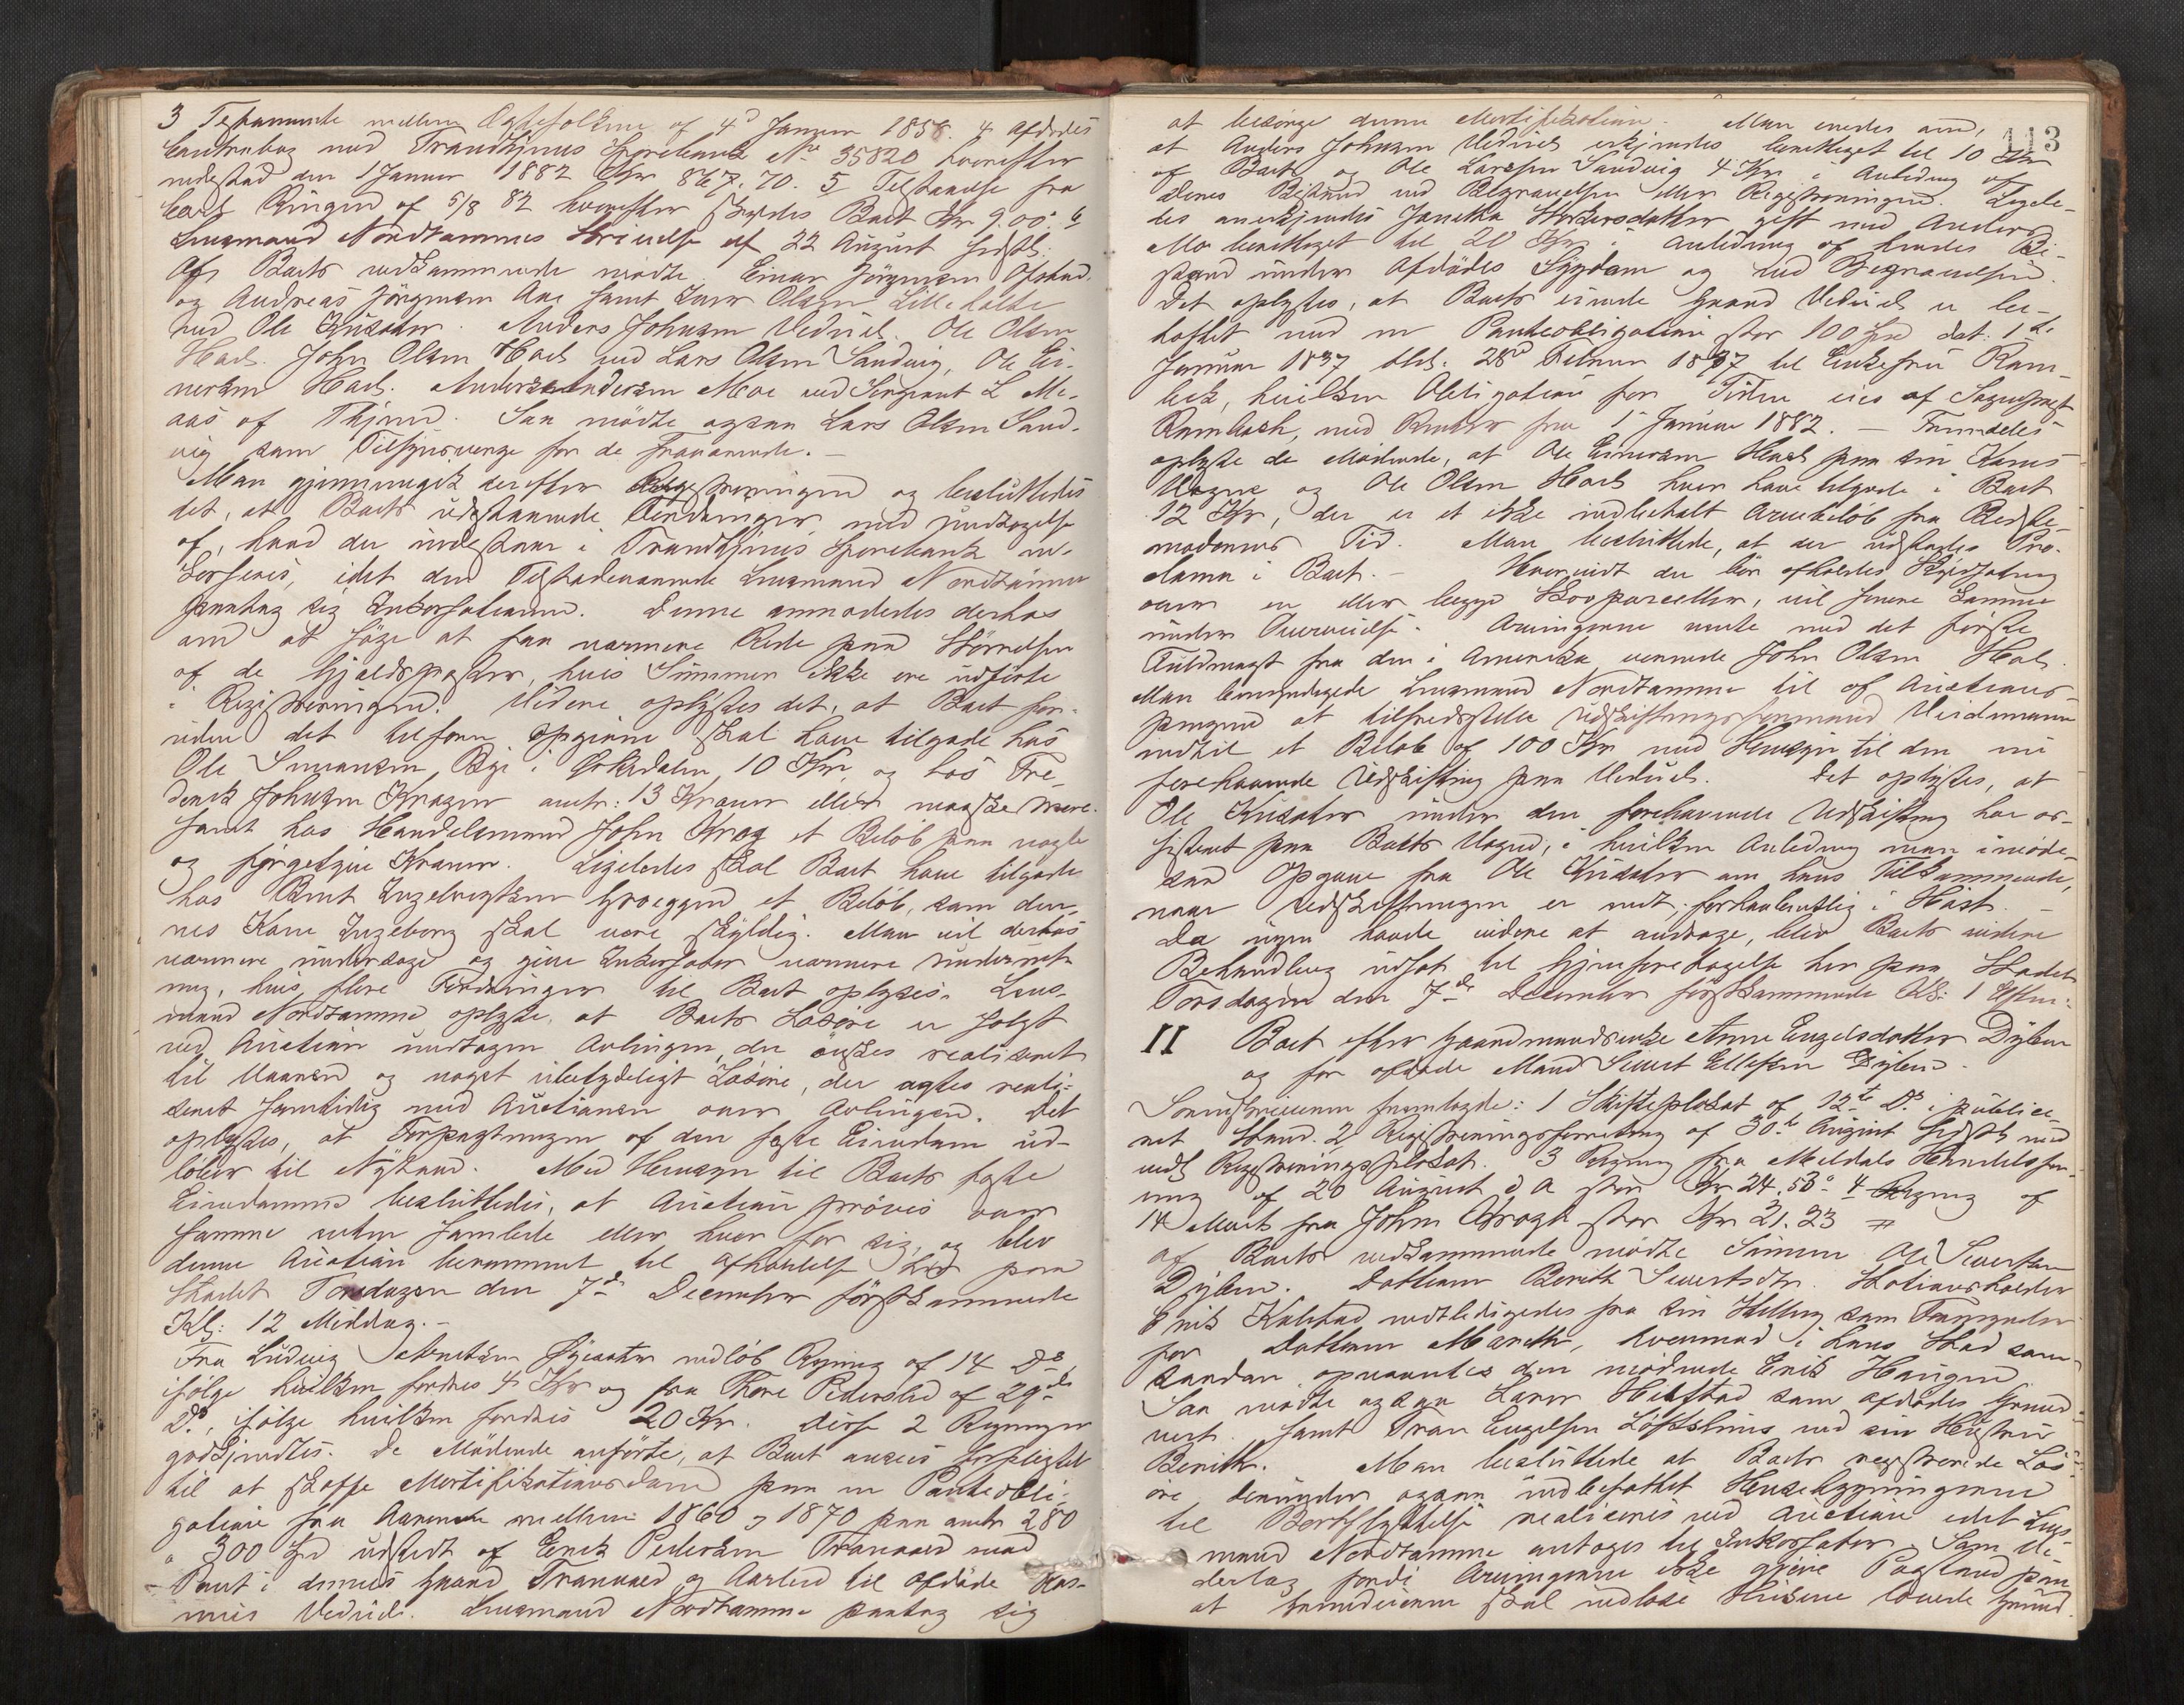 3 Testamente mellem Ægtefolkene af 4d Januar 1858. 4 Afdødes
Contrabog med Trondhjems Sparebank No 35820 hvorefter
indestod den 1 Januar 1882 Kr 867.70. 5 Tilstaaelse fra
Carl Ringen af 5/8 82 hvorefter skyldes Boet Kr 9.00. 6
Lensmand Nordtømmes Skrivelse af 22 August sidstl.
Af Boets vedkommende mødte Einar Jörgensen Opstad
og Andreas Jörgensen Aae samt Olsen Lilleholte
ved Ole Krisater. Anders Johnsen Vediul Ole Olsen
Hoel. John Olsen Hoel ved Lars Olsen Sandvig, Ole Ei-
nersen Hoel. Anders Andersen Moe ved Sergeant L Me-
aas af Thjem. Saa mødte ogsaa Lars Olsen Sand-
vig som Tilsynsverge for de Fraværende. –
Man gjennemgik derefter Registreringen og besluttedes
det, at Boets udestaaende Fordringer med Undtagelse
af, hvad der indestaar i Trondhjems Sparebank in-
kasseres, idet den Tilstedeværende Lensmand Nordtømme
paatog sig Inkassationen. Denne anmodedes derhos
om at søge at faa nærmere Rede paa Størrelsen
af de Gjældsposter, hvis Summer ikke ere udførte
i Registreringen. Videre oplystes det, at Boet for-
uden det tilforn opgivne skal have tilgode hos
Ole Simonsen Bye i Orkedalen 10 Kr, og hos Fre-
derik Johnsen Kragen omtr: 13 Kroner eller maaske mere.
samt hos Handelsmand John Krog et Beløb paa nogle
og fyrgetyve Kroner. Ligeledes skal Boet have tilgode
hos Bernt Ingebrigtsen Groeggen et Beløb, som den-
nes Kone Ingeborg skal være skyldig. Man vil derhos
nærmere undersøge og give Inkassator nærmere Underret-
ning, hvis flere Fordringer til Boet oplyses. Lens-
mand Nordtømme oplyste, at Boets Løsøre er solgt
ved Auction undtagen Avlingen, der ønskes realiseret
til Vaaren og noget ubetydeligt Løsøre, der agtes reali-
seret samtidig med Auctionen over Avlingen. Det
oplystes, at Forpagtningen af den faste Eiendom ud-
løber til Nytaar. Med Hensyn til Boets faste
Eiendomme besluttedes, at Auction prøves over
samme enten samlede eller hver for sig, og blev
denne Auction berammet til Afholdelse her paa
Stedet Torsdagen den 7de December førstkommende
Kl: 12 Middag. –
Fra Ludvig Arntsen indløb Regning af 14 Ds.
ifølge hvilken fordres 4 Kr og fra Thore Pedersled af 29de
Ds., ifølge hvilken fordres 20 Kr. Disse 2 Regninger
godkjendtes. De Mødende anførte, at Boet ansees forpligtet
til at skaffe Mortifikationsdom paa en Panteobli-
gation fra Aarene mellem 1860 og 1870 paa omtr 280
a 300 Spd udstedt af Erik Pedersen Tranaaed mod
Pant i dennes Gaard Tranaaed og Aarlid til afdøde Ras-
mus Vediul. Lensmand Nordtømme paatog sig
113
at besørge denne Mortifikation. Man enedes om,
at Anders Johnsen Vediuel erkjendes berettiget til 10 Kr
af Boet og Ole Larssen Sandvig 4 Kr i Anledning af
deres Bistand ved Begravelsen eller Registreringen. Ligele-
des anerkjendes Janetka Storkersdatter gift med Anders
Moe berettiget til 20 Kr i Anledning af hendes Bi-
stand under Afdødes Sygdom og ved Begravelsen.
Det oplystes, at Boets eiende Gaard Vediuel er be-
heftet med en Panteobligation stor 100 Spd dat: 1de
Januar 1837 thl. 28d Februar 1837 til Enkefru Ram-
bech, hvilken Obligation for Tiden eies af Sogneprest
Rambech, med Renter fra 1 Januar 1882. – Fremdeles
oplyste de Mødende, at Ole Einersen Hoel paa sin Kones
Vegne og Ole Olsen Hoel hver have tilgode i Boet
12 Kr, der er et ikke indbetalt Arvebeløb fra Bedste-
moderens Tid. Man besluttede, at der udstedes Pro-
clama i Boet. – Hvorvidt der bør afholdes Skjødsætning
over en eller begge Skovparceller, vil senere komme
under Overveielse. Arvingerne vente med det første
Fuldmagt fra den i Amerika værende John Olsen Hoel.
Man bemyndigede Lensmand Nordtømme til af Auctions-
pengene at tilfredsstille Udskiftningsformand Weidemann
indtil et Beløb af 100 Kr med Hensyn til den nu
forehavende Udskiftning paa Vediuel. Det oplystes, at
Ole Krisater under den forehavende Udskiftning har as-
sisteret paa Boets Vegne, i hvilken Anledning man imøde-
saa Opgave fra Ole Krisater om hans Tilkommende,
naar Udskiftningen er endt, forhaabentlig i Høst. –
Da ingen havde videre at andrage, blev Boets videre
Behandling udsat til Gjenforetagelse her paa Stedet
Torsdagen den 7de December førstkommende Kl: 1 Efterm:
II Boet efter Gaardmandsenke Anne Engelsdatter Dylem
og før afdøde Mand Sivert Ellefsen Dylem.
Sorenskriveren fremlagde: 1 Skifteplakat af 12te Ds. i publice-
ret Stand. 2 Registreringsforretning af 30te August sidstl. med
vedl. Registreringsplakat. 3 Regning fra Meldals Handelsfor-
ning af 20 August d. A stor Kr 24.53. 4 Regning af
14 Marts fra John Krogh stor Kr 21.23
af Boets vedkommende mødte Sønnen Ole Sivertsen
Dylem. Datteren Berith Sivertsdtr. Stationsholder
Erik Kalstad vedtledigedes fra sin Stilling som Formynder
for Datteren Marith, hvormod i hans Sted som
saadan opnævntes den mødende Erik Haugen.
Saa mødte ogsaa Helstad som afdødes Grund-
eier. Samt Engelsen ved sin Hustru
Berith. Man besluttede at Boets registrerede Løs-
øre, derunder ogsaa indbefattet Husebygningerne
til Bortflyttelse realiseres ved Auction idet Lens
mand Nordtømme antoges til Inkassator. Som Ve-
derlag fordi Arvingerne ikke gjøre Paastand paa
at Grundeieren skal indløse Husene lovede Grund